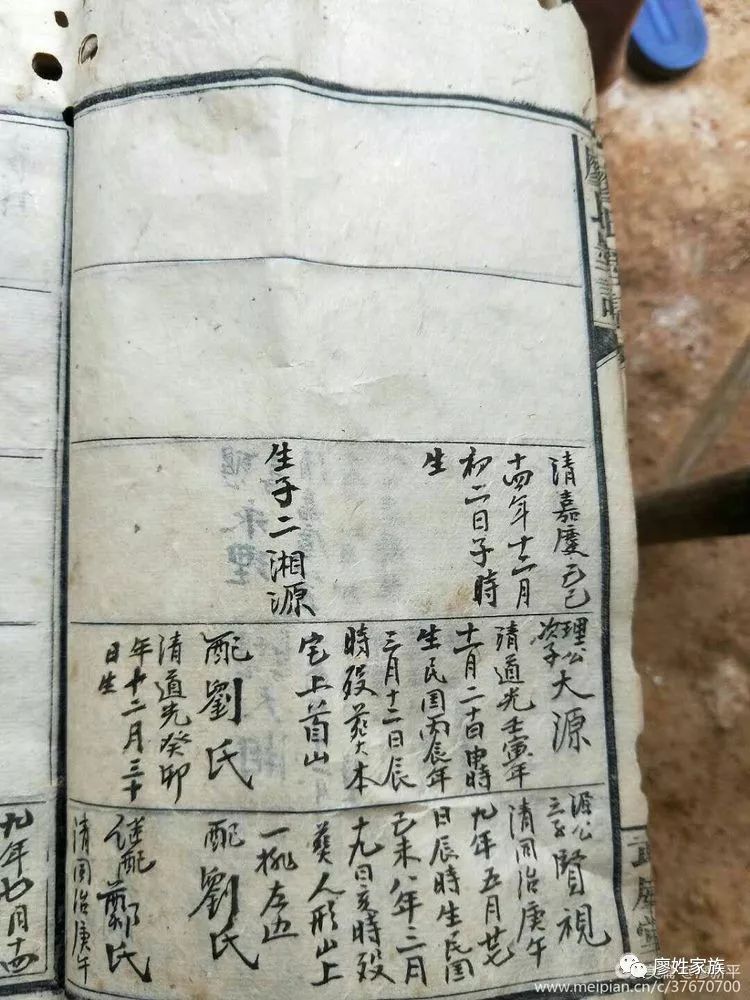 武威堂
清嘉慶己巳
十四年十二月
初二日子時
生
生子二 湘源
理公次子 大源
清道光壬寅年
十一月二十日申時
生民国丙辰年
三月十二日辰
時殁葬大本
宅上首山
配劉氏
清道光癸卯
年十二月三十
日生
源公三子 賢視
清同治庚午
九年五月廿七
日辰時生民国
己未八年二月
十九日亥時殁
葬人形山上
一排左边
配劉氏
継配鄭氏
清同治庚午
九年七月十四
廖姓家族
www.meipian.cn/c/37670700